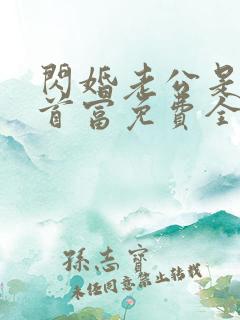 閃婚老公是
首富免費全
孫志寶
未經同意禁止轉載